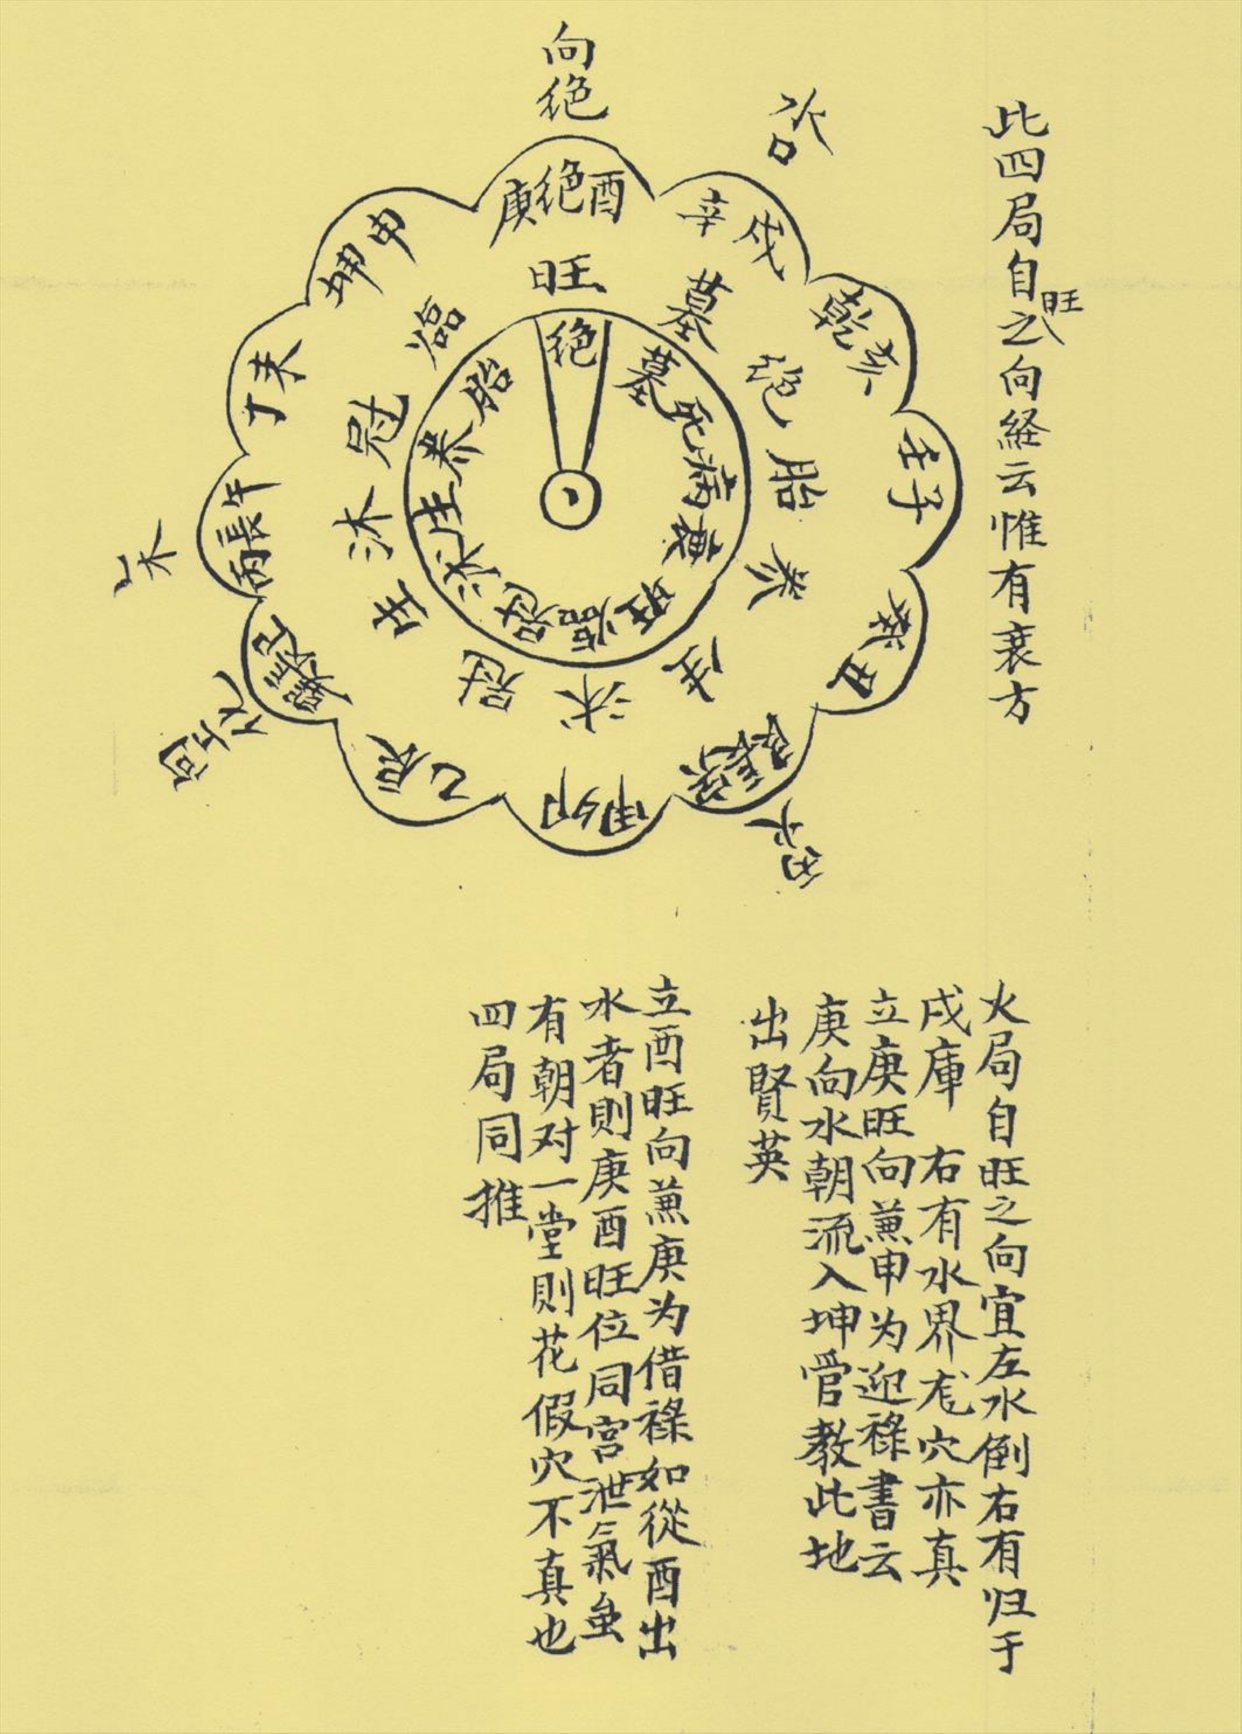 此四局自旺之向経云惟有衰方
向绝
水口
庚绝酉
辛戌
乾亥
壬子
癸丑
艮長寅
甲卯
乙辰
巽養巳
丙長午
丁未
坤申
旺
墓
绝
胎
养
生
沐
冠
生
沐
冠
臨
绝
墓
死
病
衰
旺
臨
冠
沐
生
养
胎
火局自旺之向宜左水倒右有归于
戌庫 右有水界尨穴亦真
立庚旺向兼申为迎祿書云
庚向水朝流入坤管教此地
出賢英
立酉旺向兼庚为借祿如從酉出
水者則庚酉旺位同宫泄氣虽
有朝对一堂則花假穴不真也
四局同推